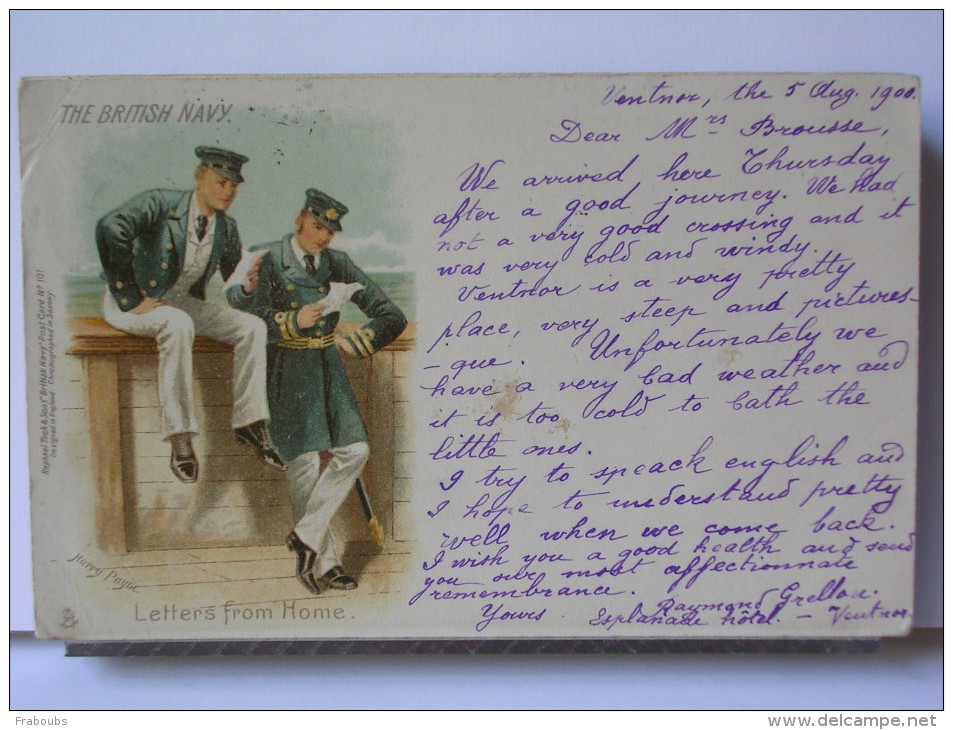 THE BRITISH NAVY.
Raphael Tuck & Sons' "British Navy" Post Card No 101
Designed in England. Chromographed in Saxony.
Harry Payne
Letters from Home.
Ventnor, the 5 Aug. 1900.
Dear Mrs Brousse,
We arrived here Thursday
after a good journey. We had
not a very good crossing and it
was very cold and windy.
Ventnor is a very pretty
place, very steep and pictures-
-que. Unfortunately we
have a very bad weather and
it is too cold to bath the
little ones.
I try to speack english and
I hope to understand pretty
well when we come back.
I wish you a good health and send
you our most affectionnate
remembrance.
Yours Raymond Grellou.
Esplanade hôtel. - Ventnor.
Fraboubs
www.delcampe.net